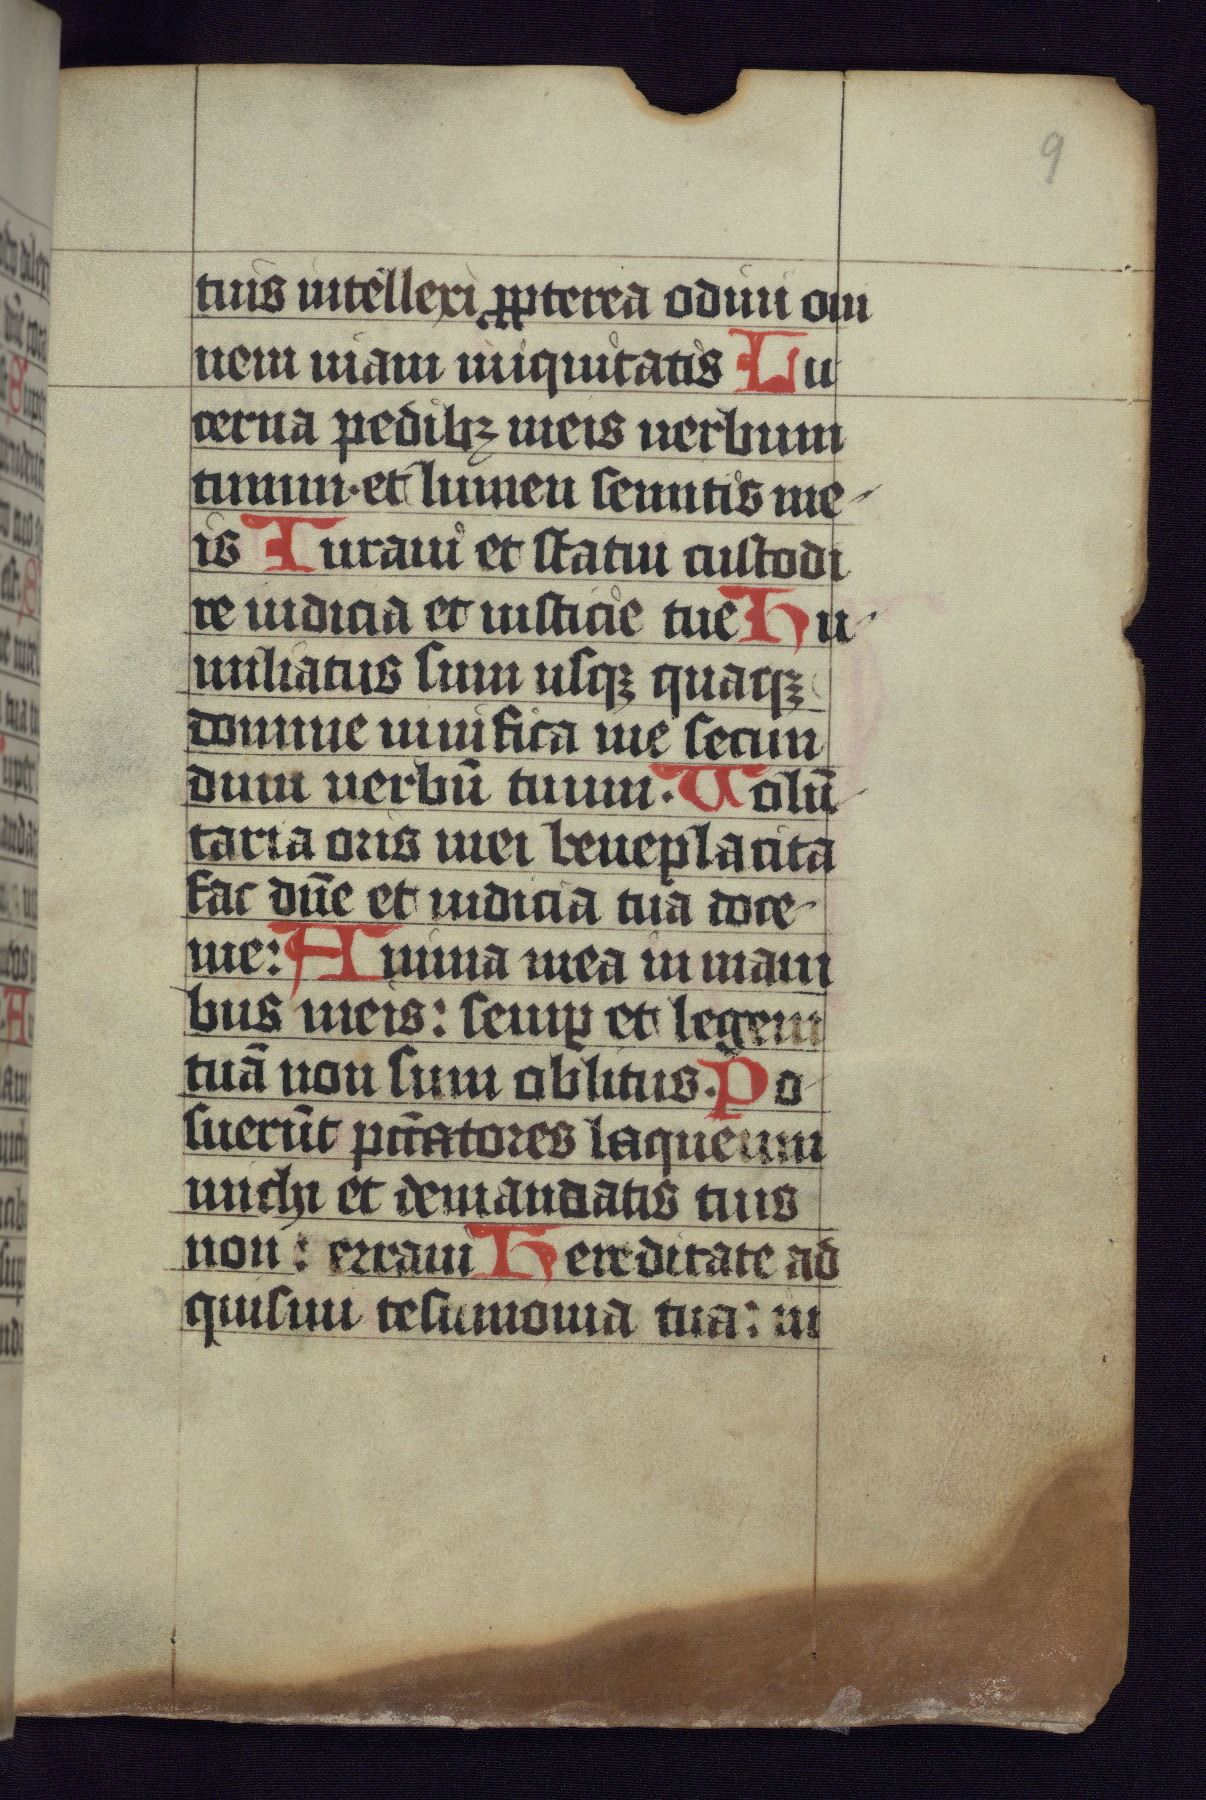 9
tuis intellexi ꝓpterea odiui om
nem uiam iniquitatis Lu
cerna pedibꝫ meis uerbum
tuum·et lumen semitis me-
is Iuraui et statui custodi
re iudicia et iusticie tue Hu-
miliatus sum usqꝫ quaqꝫ
domine uiuifica me secun
dum uerbū tuum·Uolū-
taria oris mei beneplacita
fac dñe et iudicia tua doce-
me: Anima mea in mani
bus meis: semꝑ et legem
tuā non sum oblitus·Po-
suerūt pcc̄atores laqueum
michi et demandatis tuis
non: erraui Hereditate ad
quisiui testimonia tua: in